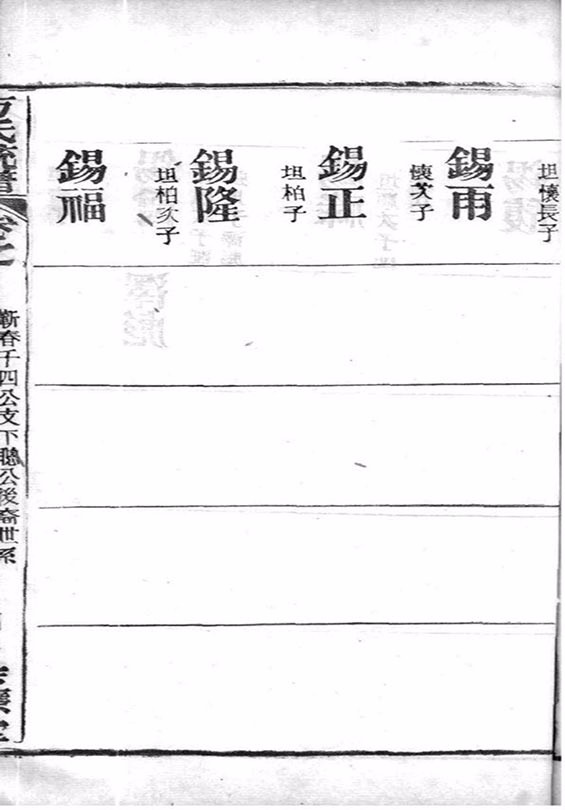 坦懷長子
錫雨
懷次子
錫正
坦柏子
錫隆
坦柏次子
錫福
氏統譜
蘄春千四公支下聰公後裔世系